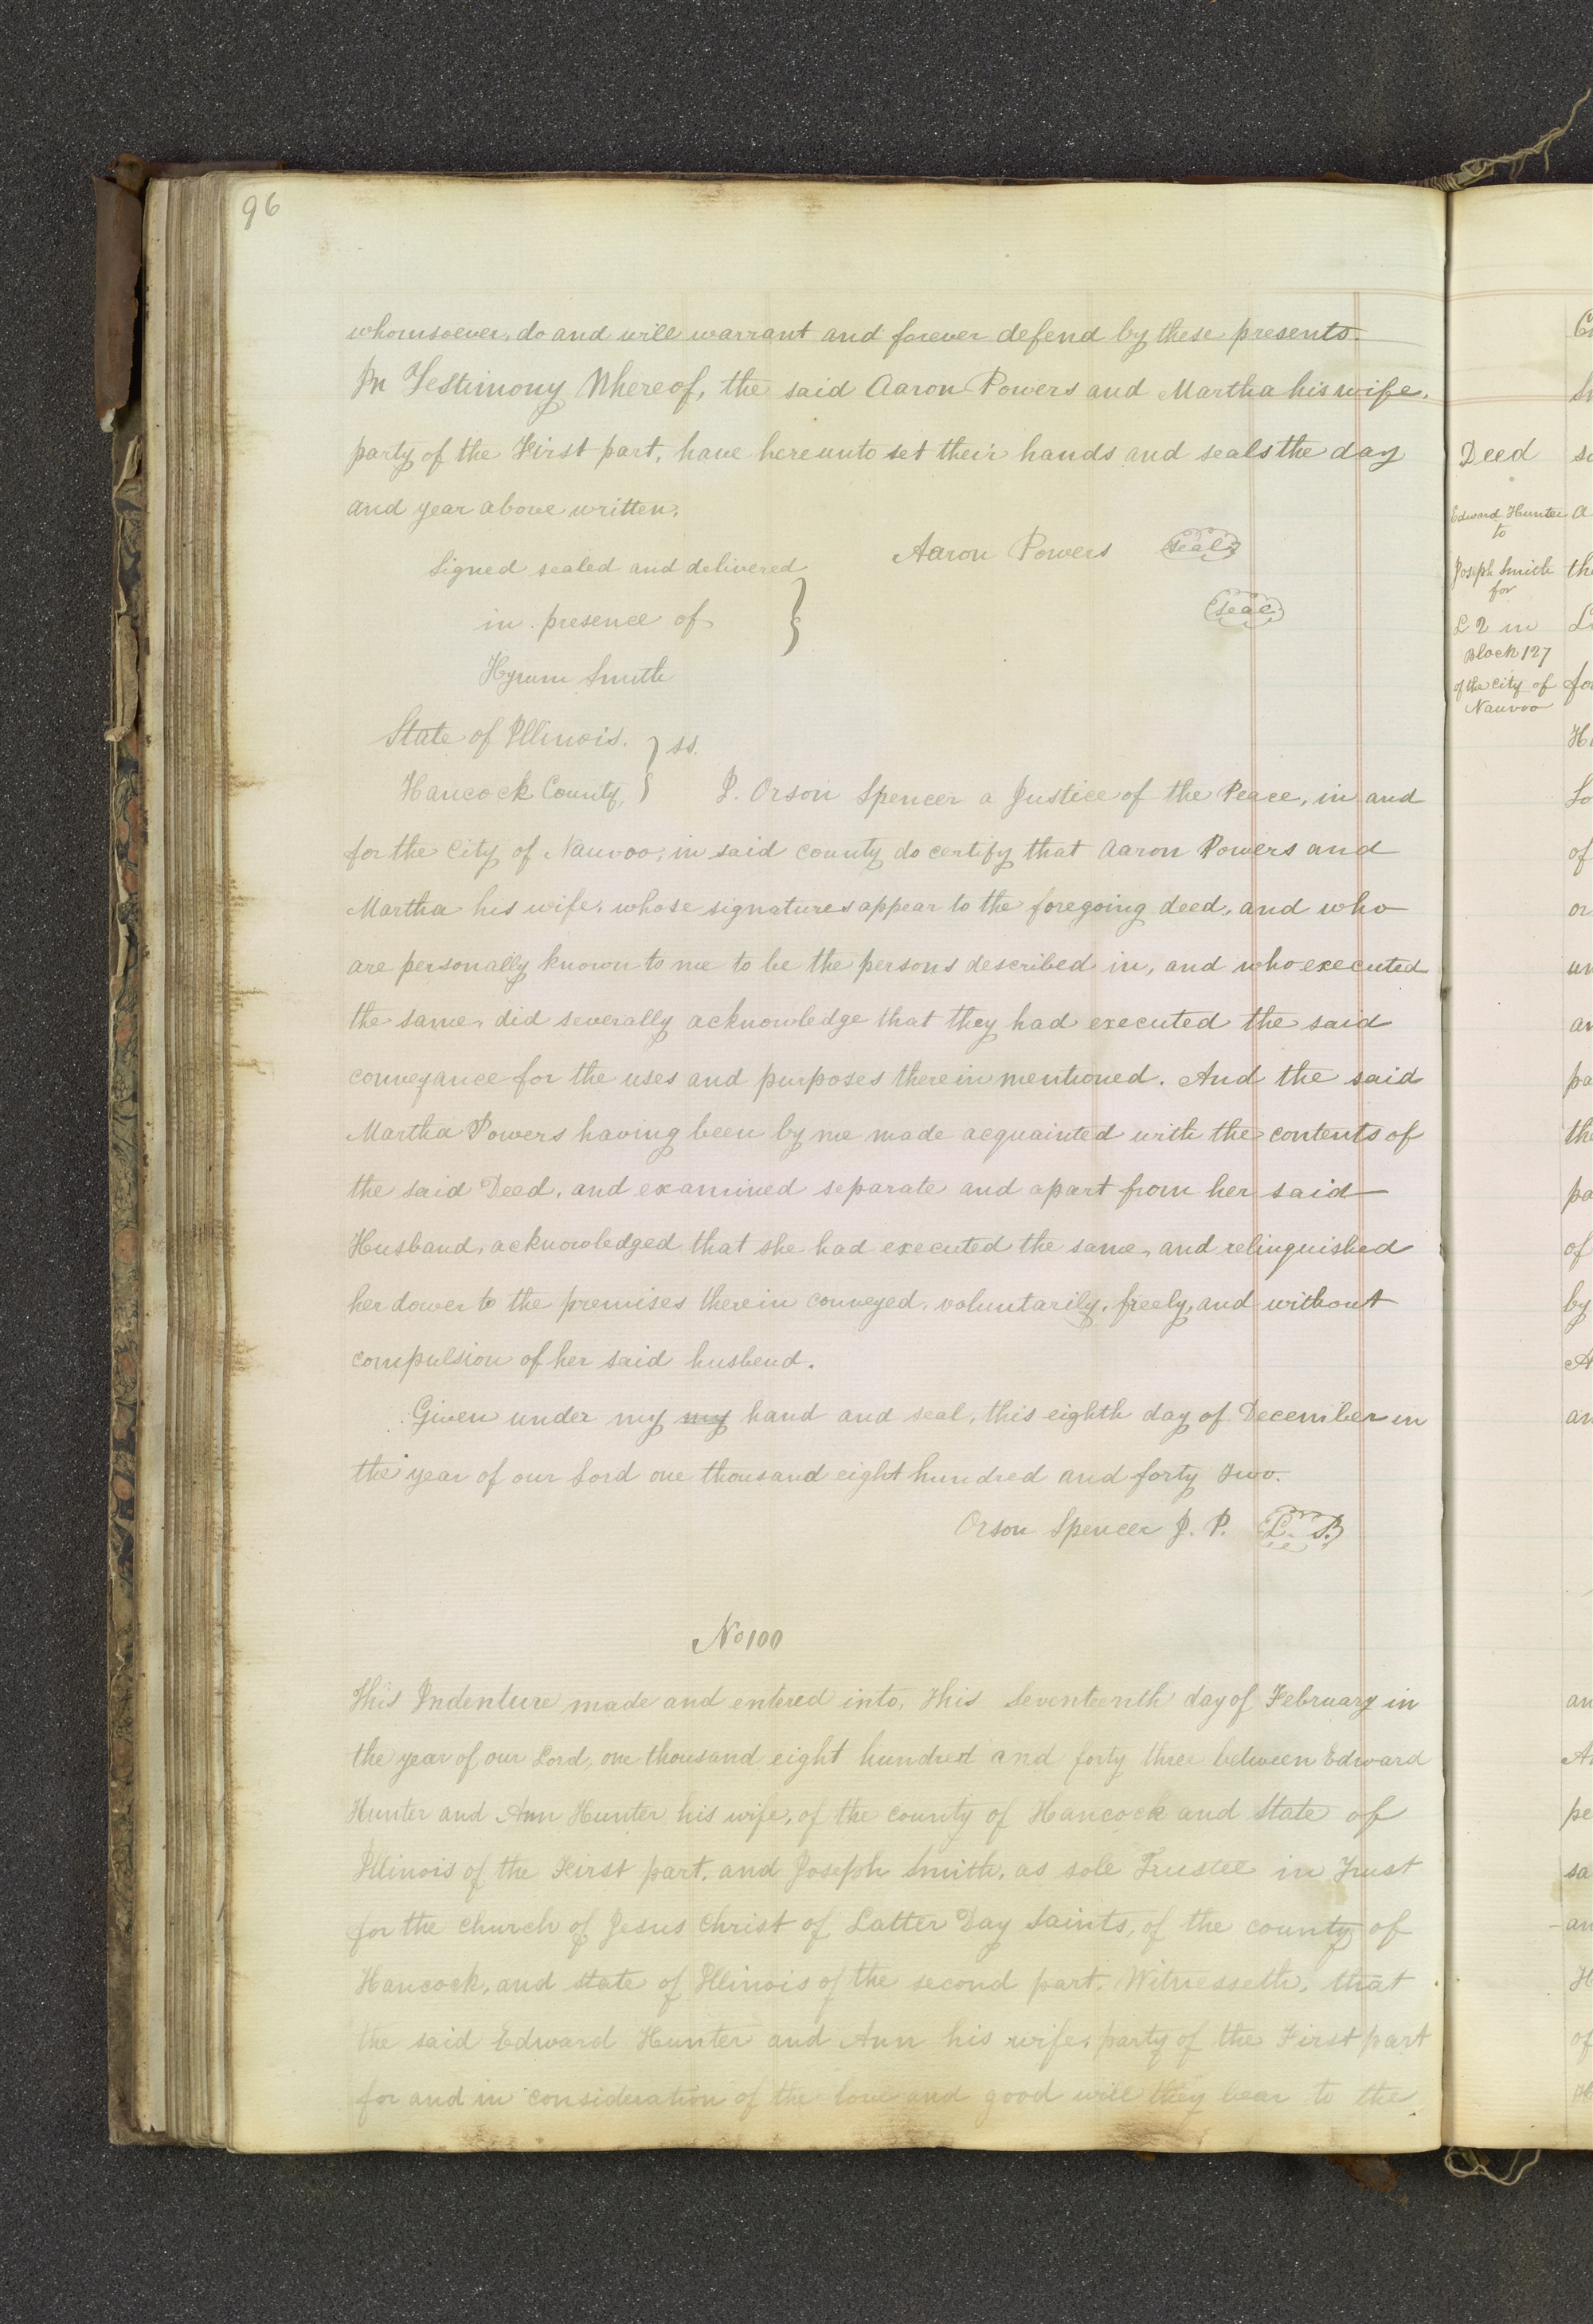 96
whomsoever, do and will warrant and forever defend by these presents.
In Testimony Whereof, the said Aaron Powers and Martha his wife,
party of the First part, have hereunto set their hands and seals the day
and year above written.
Aaron Powers seal
Signed sealed and delivered
in presence of
seal
Hyrum Smith
State of Illinois. } ss.
Hancock County, } I. Orson Spencer a Justice of the Peace, in and
for the City of Nauvoo, in said county do certify that Aaron Powers and
Martha his wife, whose signatures appear to the foregoing deed, and who
are personally known to me to be the persons described in, and who executed
the same, did severally acknowledge that they had executed the said
conveyance for the uses and purposes therein mentioned. And the said
Martha Powers having been by me made acquainted with the contents of
the said Deed, and examined separate and apart from her said
Husband, acknowledged that she had executed the same, and relinquished
her dower to the premises therein conveyed, voluntarily, freely, and without
compulsion of her said husbend.
Given under my my hand and seal, this eighth day of December in
the year of our Lord one thousand eight hundred and forty two.
Orson Spencer J. P. L. S.
No 100
This Indenture made and entered into, this Seventeenth day of February in
the year of our Lord, one thousand eight hundred and forty three between Edward
Hunter and Ann Hunter his wife, of the county of Hancock and State of
Illinois of the First part, and Joseph Smith, as sole Trustee in Trust
for the Church of Jesus Christ of Latter Day Saints, of the county of
Hancock, and state of Illinois of the second part. Witnesseth, that
the said Edward Hunter and Ann his wife, party of the First part
for and in consideration of the love and good will they bear to the
Deed
Edward Hunter
to
Joseph Smith
for
L 2 in
Block 127
of the City of
Nauvoo